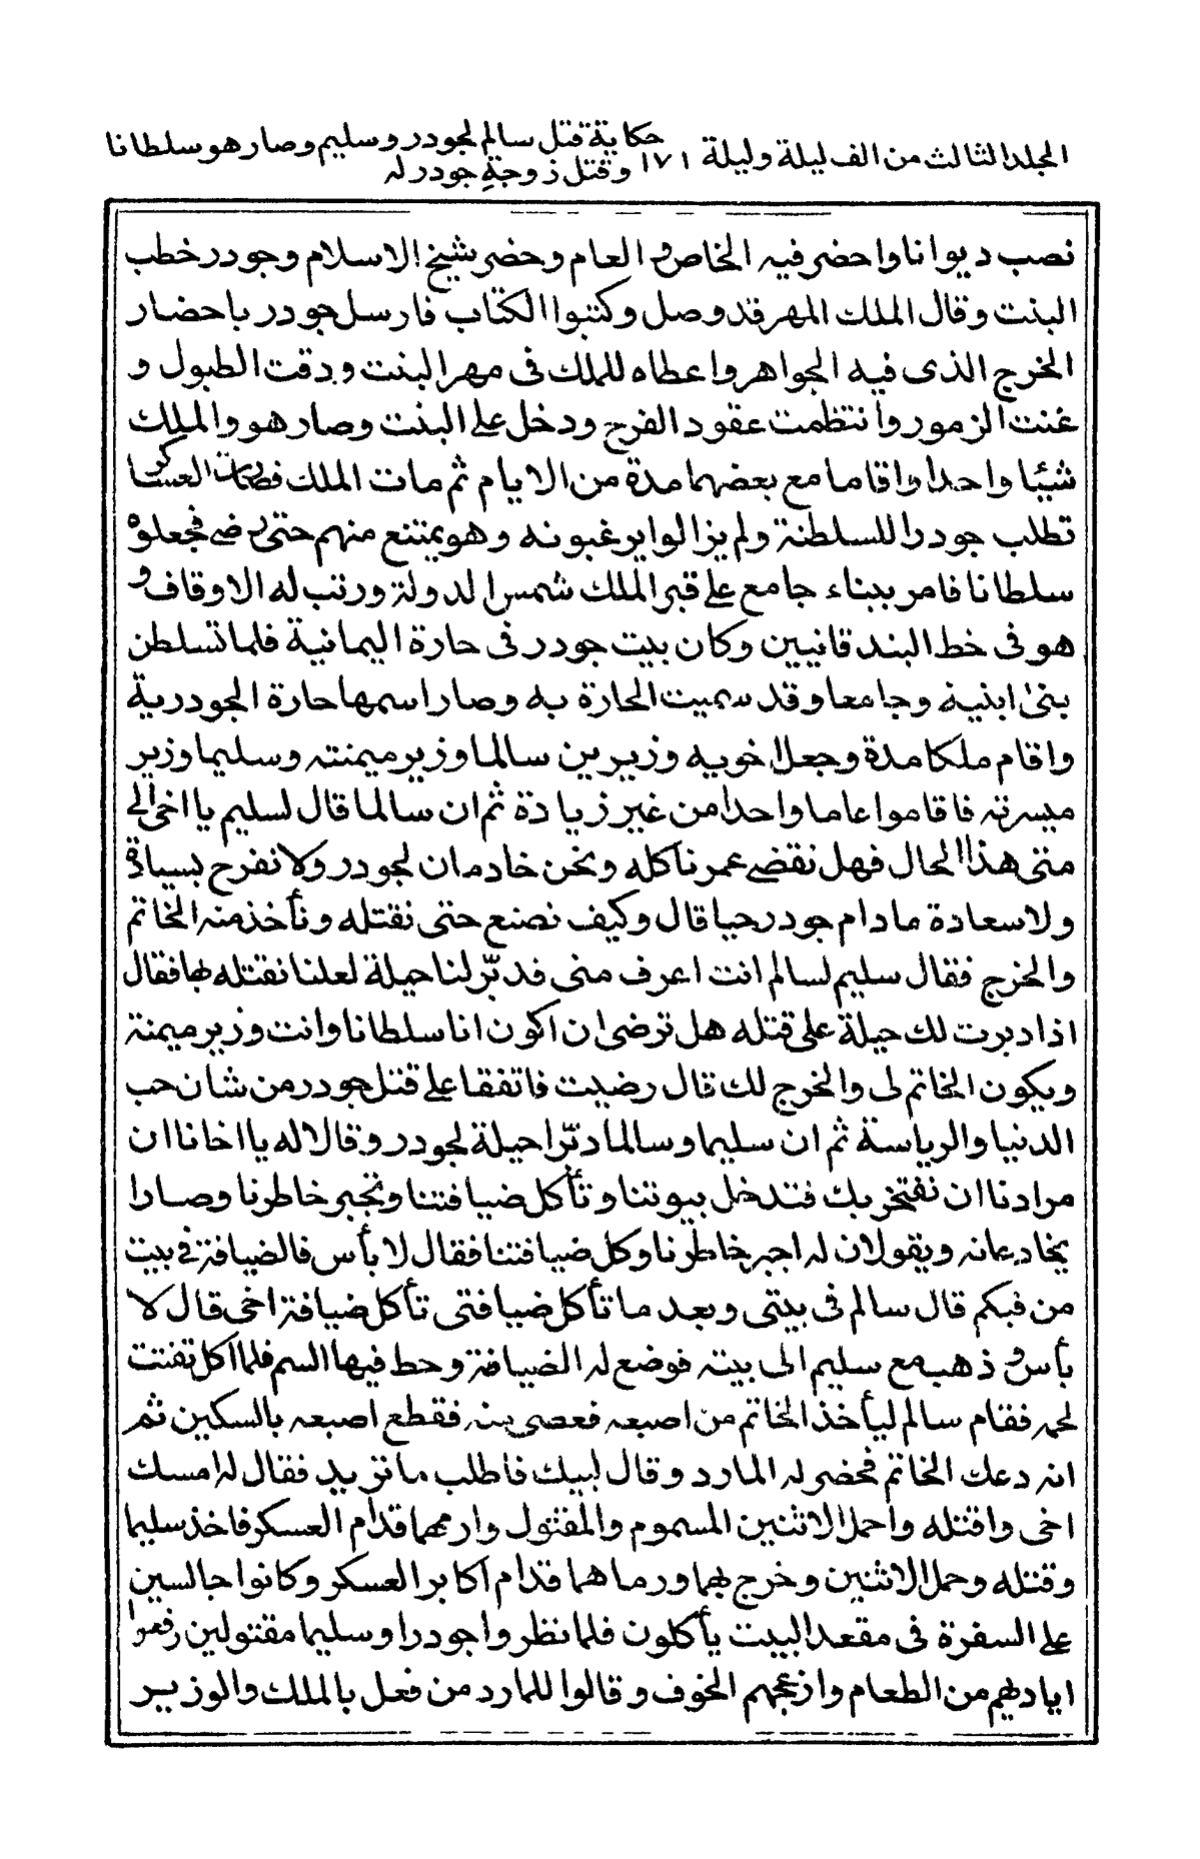 المجلد الثالث من الف ليلة وليلة ١٧١ حكاية قتل سالم لجودر وسليم وصار هو سلطانا
وقتل زوجةِ جودر له
نصب ديوانا واحضر فيه الخاص والعام وحضر شيخ الاسلام وجودر خطب
البنت وقال الملك المهر قد وصل وكتبوا الكتاب فارسل جودر باحضار
الخرج الذى فيه الجواهر واعطاه للملك فى مهر البنت ودقت الطبول و
غنت الزمور وانتظمت عقود الفرح ودخل على البنت وصار هو والملك
شيئا واحدا واقاما مع بعضهما مدة من الايام ثم مات الملك فصارت العساكر
تطلب جودرا للسلطنة ولم يزالوا يرغبونه وهو يمتنع منهم حتى رضى فجعلوه
سلطانا فامر ببناء جامع على قبر الملك شمس الدولة ورتب له الاوقاف و
هو فى خط البندقانيين وكان بيت جودر فى حارة اليمانية فلما تسلطن
بنىٰ ابنية وجامعا وقد سميت الحارة به وصار اسمها حارة الجودرية
واقام ملكا مدة وجعل اخويه وزيرين سالما وزير ميمنته وسليما وزير
ميسرته فاقاموا عاما واحدا من غير زيادة ثم ان سالما قال لسليم يا اخى الى
متى هذا الحال فهل نقضى عمرنا كله ونحن خادمان لجودر ولا نفرح بسيادة
ولا سعادة ما دام جودر حيا قال وكيف نصنع حتى نقتله ونأخذ منه الخاتم
والخرج فقال سليم لسالم انت اعرف منى فدبّر لنا حيلة لعلنا نقتله بها فقال
اذا دبرت لك حيلة على قتله هل ترضىٰ ان اكون انا سلطانا وانت وزير ميمنة
ويكون الخاتم لى والخرج لك قال رضيت فاتفقا على قتل جودر من شان حب
الدنيا والرياسة ثم ان سليما وسالما دبّرا حيلة لجودر وقالا له يا اخانا ان
مرادنا ان نفتخر بك فتدخل بيوتنا وتأكل ضيافتنا وتجبر خاطرنا وصارا
يخادعانه ويقولان له اجبر خاطرنا وكل ضيافتنا فقال لا بأس فالضيافة فى بيت
من فيكم قال سالم فى بيتى وبعد ما تأكل ضيافتى تأكل ضيافة اخى قال لا
بأس وذهب مع سليم الى بيته فوضع له الضيافة وحط فيها السم فلما اكل تفتت
لحمه فقام سالم ليأخذ الخاتم من اصبعه فعصى منه فقطع اصبعه بالسكين ثم
انه دعك الخاتم فحضر له المارد وقال لبيك فاطلب ما تريد فقال له امسك
اخى واقتله واحمل الاثنين المسموم والمقتول وارمهما قدام العسكر فاخذ سليما
وقتله وحمل الاثنين وخرج بهما ورماهما قدام اكابر العسكر وكانوا جالسين
على السفرة فى مقعد البيت يأكلون فلما نظروا جودرا وسليما مقتولين رفعوا
اياديهم من الطعام وازعجهم الخوف وقالوا للمارد من فعل بالملك والوزير